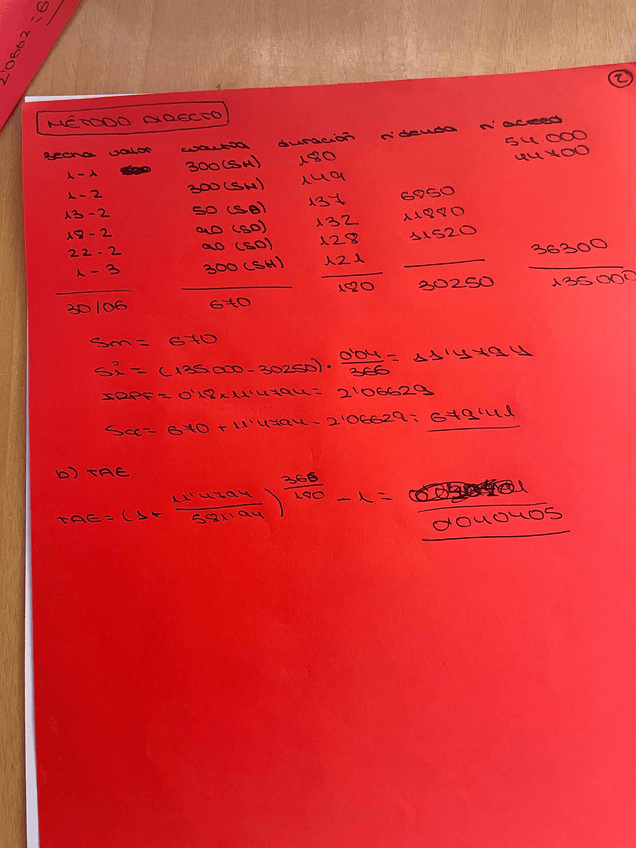 2'0662 = 6
2
MÉTODO DIRECTO
fecha valor cuantía duración nºdeuda nºacreed
1-1 300(SH) 180 54.000
1-2 300(SH) 149 44700
13-2 50 (SD) 137 6850
18-2 90 (SD) 132 11880
22-2 90 (SD) 128 11520
1-3 300(SH) 121 36300
30/06 670 180 30250 135.000
Sm= 670
Si= (135000-30250)· 0'04/365 = 11'4794
IRPF= 0'18x11'4794= 2'06629
Sc= 670 + 11'4794 - 2'06629= 679'41
b) TAE.
TAE= (1+ 11'4794/581'94)^365/180 - 1 =
0'040405